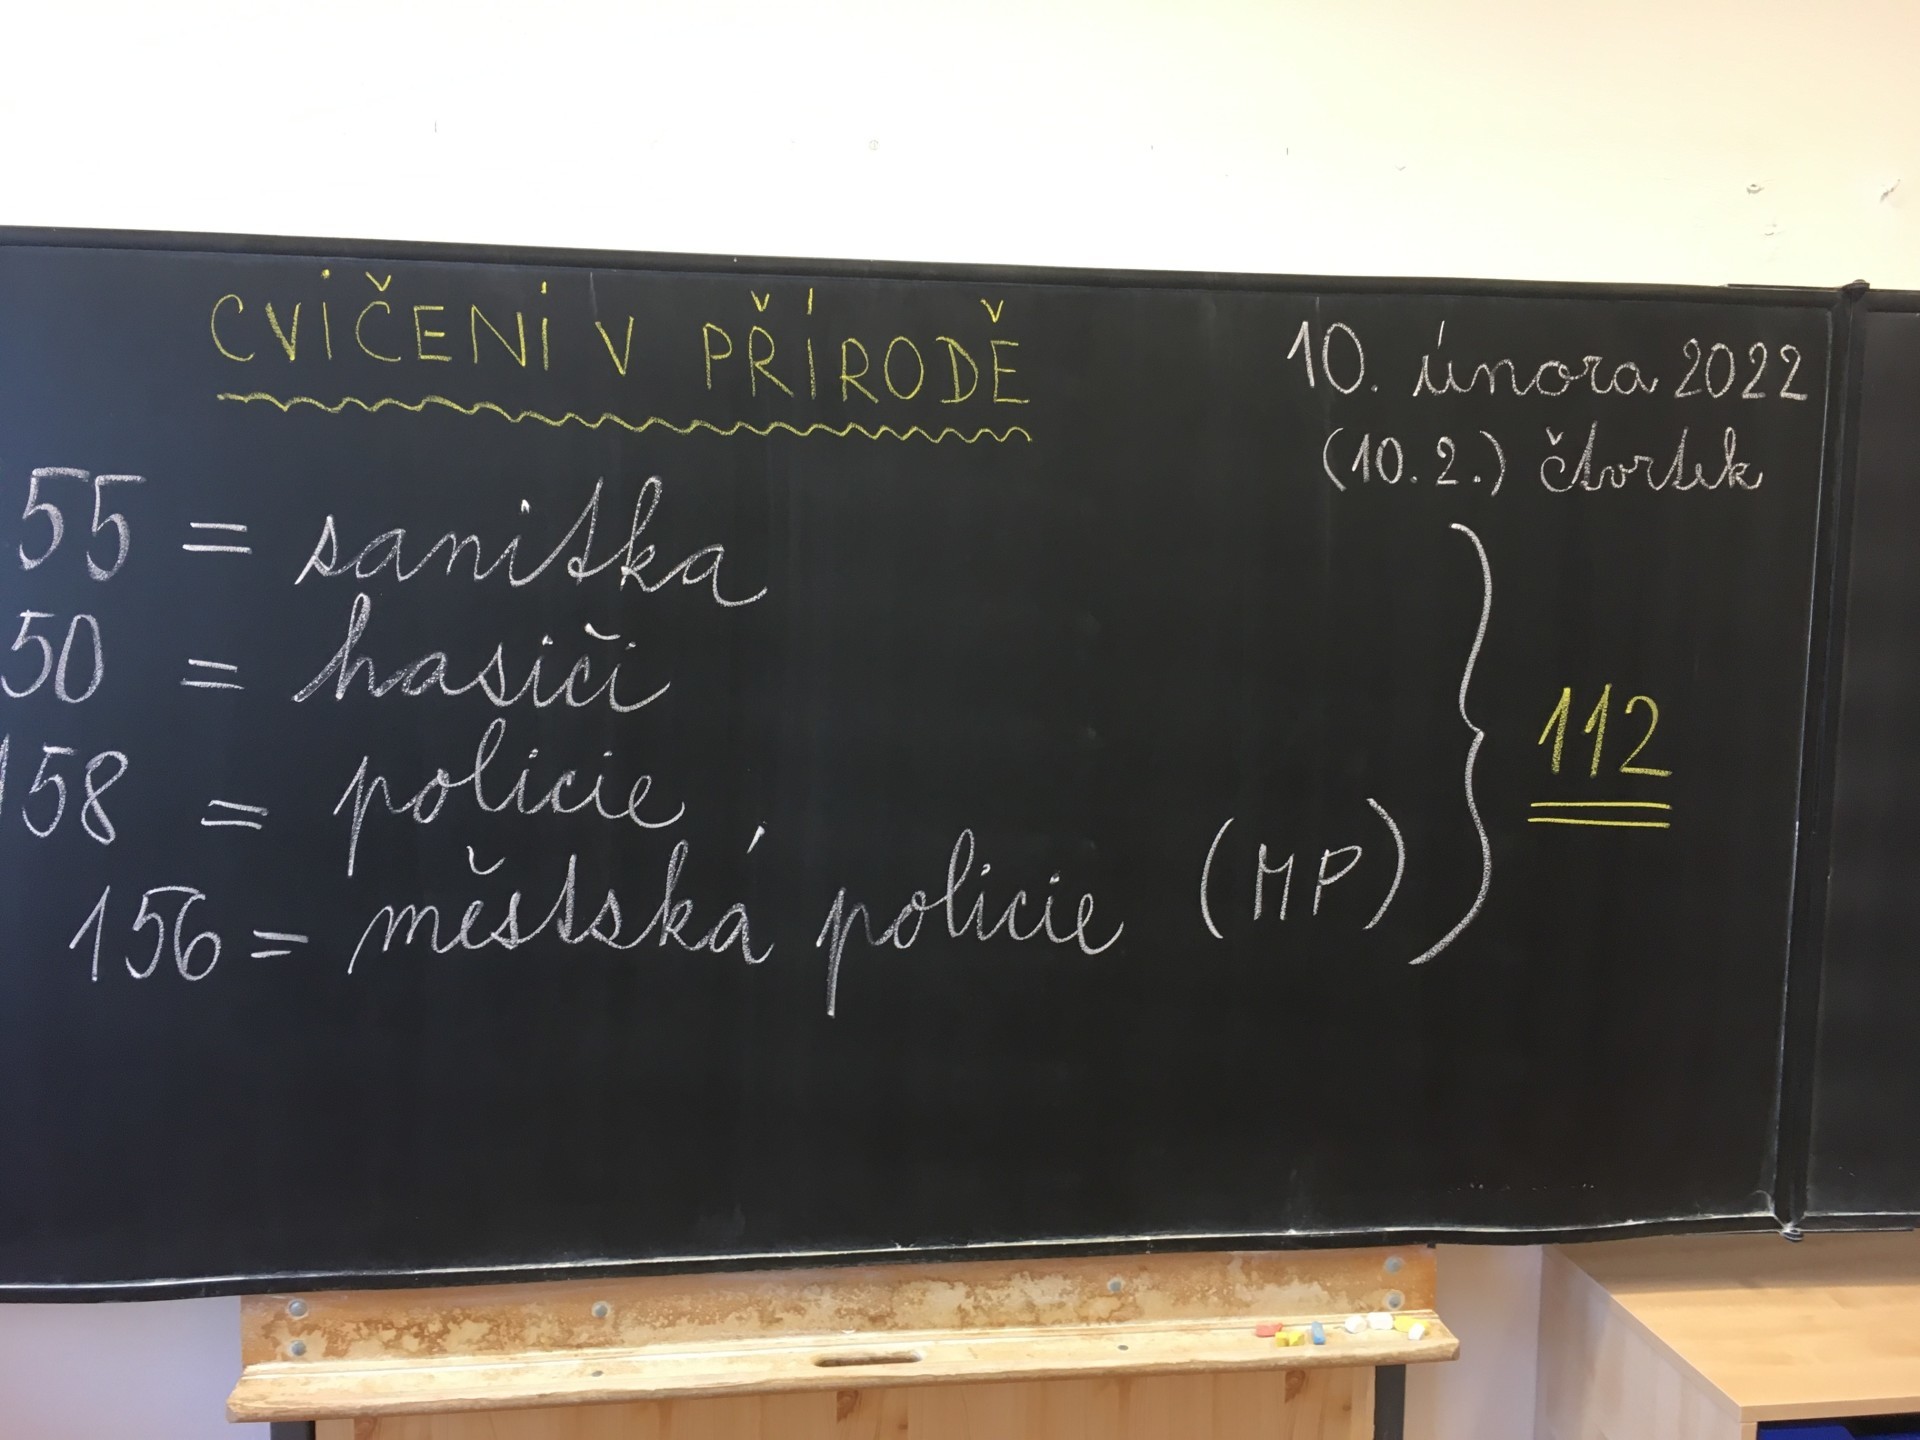 CVIČENÍ V PŘÍRODĚ
10. února 2022
(10. 2.) čtvrtek
55 = sanitka
50 = hasiči
158 = policie
156 = městská policie (MP)
112